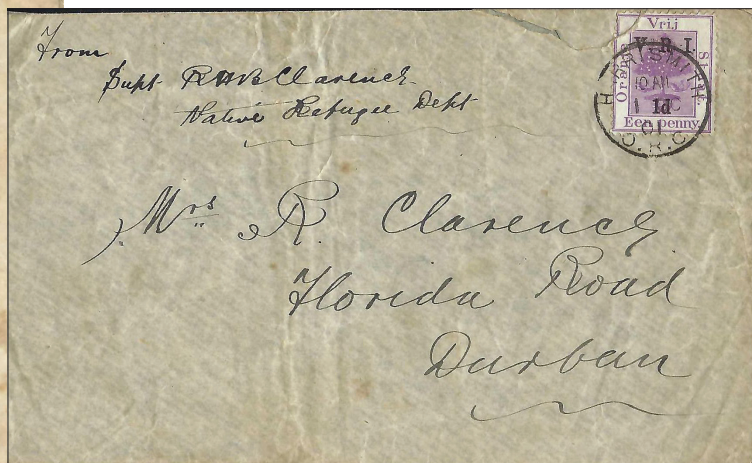 From
Supt R W B Clarence
Native Refugee Dept
Mrs R. Clarence
Florida Road
Durban
Vrij
V. R. I.
Oranje
1d
Een penny.
HARRISMITH
10 AM
1
01
O.R.C.